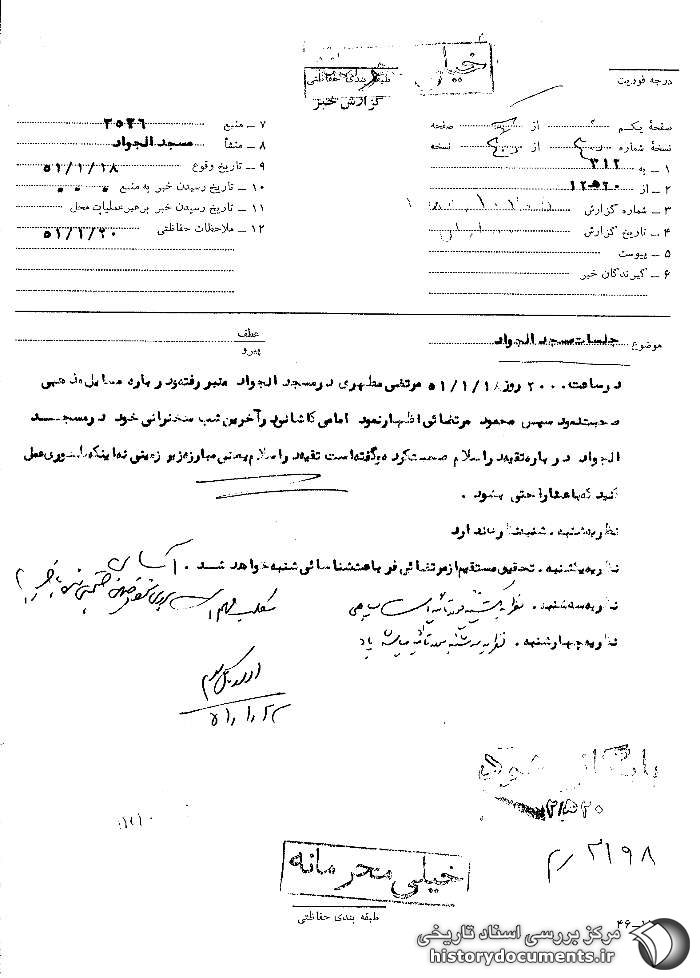 خیلی
طبقه بندی حفاظتی
گزارش خبر
درجه فوریت
صفحهٔ یکم از صفحه
نسخهٔ شماره از نسخه
۱ - به ۳۱۲
۲ - از ۲۰ه۱۲
۳ - شماره گزارش
۴ - تاریخ گزارش
۵ - پیوست
۶ - گیرندگان خبر
۷ - منبع ۳۵۳۶
۸ - منشأ مسجد الجواد
۹ - تاریخ وقوع ۵۱/۱/۱۸
۱۰ - تاریخ رسیدن خبر به منبع
۱۱ - تاریخ رسیدن خبر برهبر عملیات محل
۱۲ - ملاحظات حفاظتی ۵۱/۱/۲۰
موضوع جلسات مسجد الجواد
عطف
پیرو
در ساعت ۲۰۰۰ روز ۵۱/۱/۱۸ مرتضی مطهری در مسجد الجواد منبر رفته و در باره مسایل مذهبی
صحبت نمود سپس محمود مرتضائی اظهار نمود امامی کاشانی در آخرین شب سخنرانی خود در مسجد
الجواد در باره تقیه در اسلام صحبت کرد و گفته است تقیه در اسلام یعنی مبارزه زیر زمینی نه اینکه طوری عمل
کنید که باعث ناراحتی بشود .
نظریه شنبه . شنبه نظری ندارد
نظریه یکشنبه . تحقیق مستقیم از مرتضائی فر باعث شناسائی شنبه خواهد شد .
نظریه سه شنبه . نظریه یکشنبه مورد تأیید است
نظریه چهارشنبه . نظریه سه شنبه مورد تأیید میباشد
۵۱/۱/۲۲
۲۰ه۳۱۲
۲۱۹۸
خیلی محرمانه
طبقه بندی حفاظتی
مرکز بررسی اسناد تاریخی
historydocuments.ir